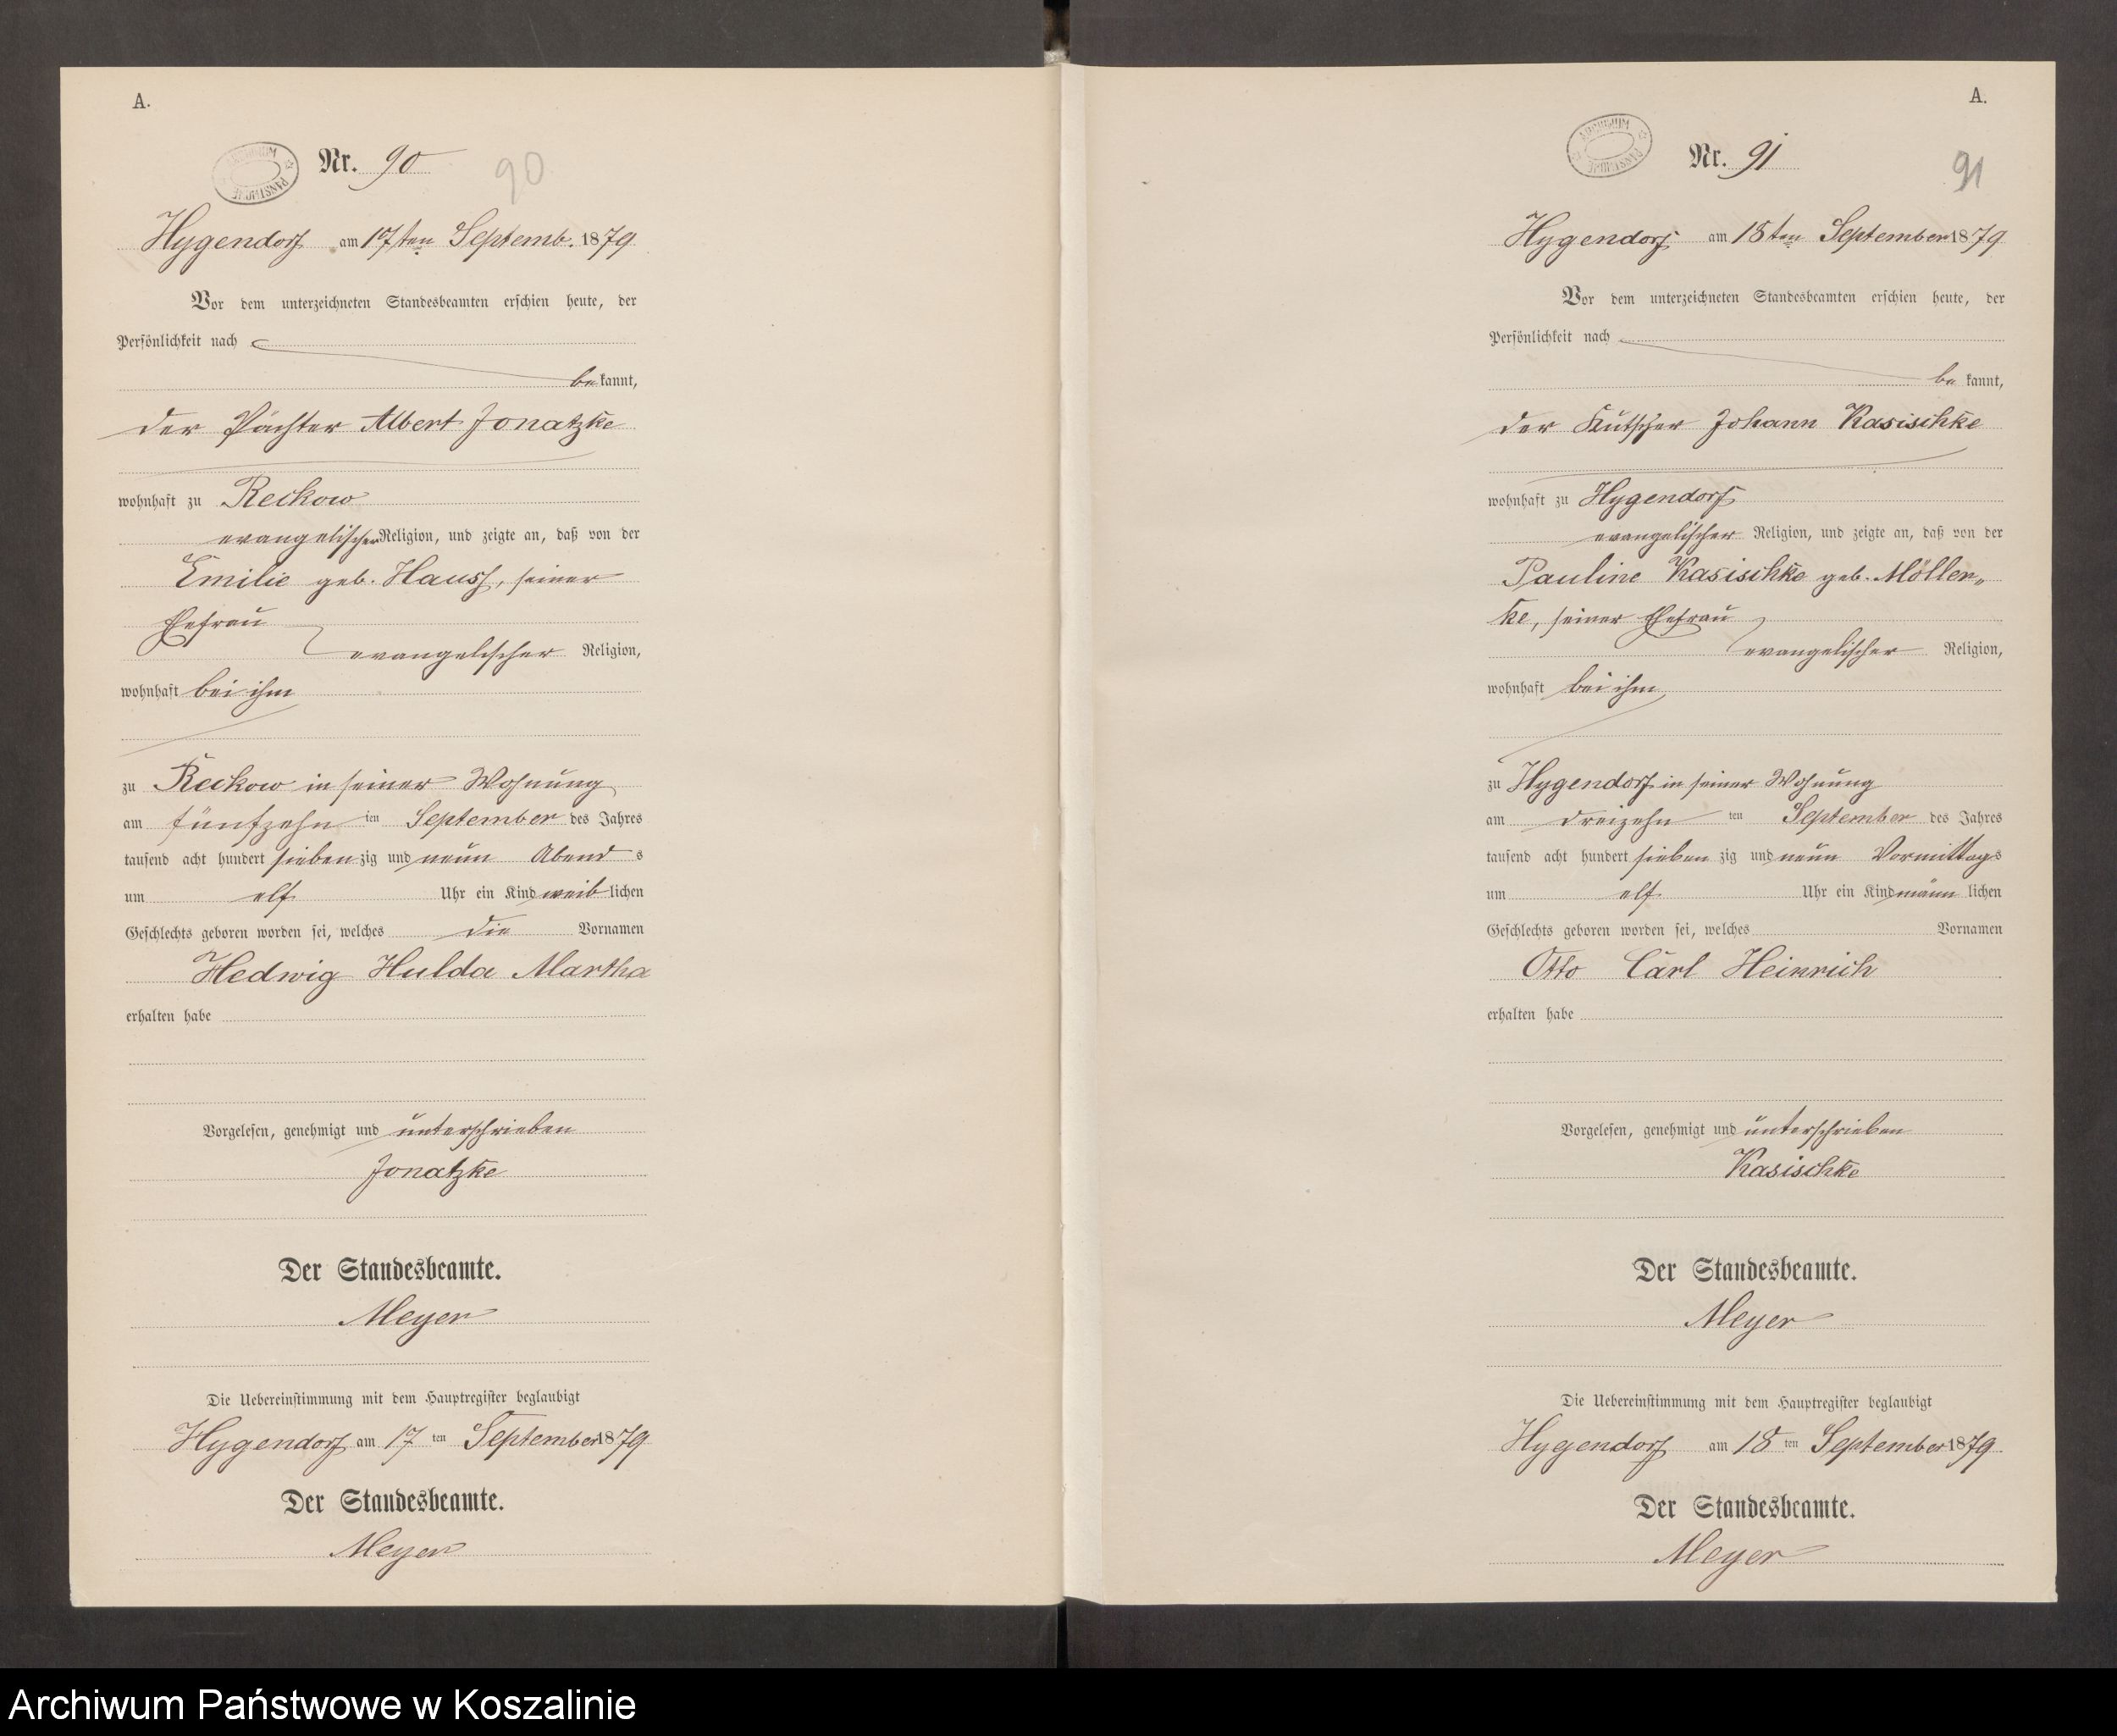 A.
Nr. 90
90
Hygendorf am 17ten Septemb. 1879
Vor dem unterzeichneten Standesbeamten erschien heute, der
Persönlichkeit nach
bekannt,
der Pächter Albert Jonatzke
wohnhaft zu Reckow
evangelischer Religion, und zeigte an, daß von der
Emilie geb. Hauss, seiner
Ehefrau
evangelischer Religion,
wohnhaft bei ihm
zu Reckow in seiner Wohnung
am fünfzehn ten September des Jahres
tausend acht hundert siebenzig und neun Abends
um elf Uhr ein Kind weiblichen
Geschlechts geboren worden sei, welches die Vornamen
Hedwig Hulda Martha
erhalten habe
Vorgelesen, genehmigt und unterschrieben
Jonatzke
Der Standesbeamte.
Meyer
Die Uebereinstimmung mit dem Hauptregister beglaubigt
Hygendorf am 17 ten September 1879
Der Standesbeamte.
Meyer
A.
ARCHIWUM PAŃSTWOWE
Nr. 91
91
Hygendorf am 18ten September 1879
Vor dem unterzeichneten Standesbeamten erschien heute, der
Persönlichkeit nach
bekannt,
der Kutscher Johann Kasischke
wohnhaft zu Hygendorf
evangelischer Religion, und zeigte an, daß von der
Pauline Kasischke geb. Möllen„
ke, seiner Ehefrau
evangelischer Religion,
wohnhaft bei ihm
zu Hygendorf in seiner Wohnung
am dreizehn ten September des Jahres
tausend acht hundert siebenzig und neun Vormittags
um elf Uhr ein Kind männlichen
Geschlechts geboren worden sei, welches Vornamen
Otto Carl Heinrich
erhalten habe
Vorgelesen, genehmigt und unterschrieben
Kasischke
Der Standesbeamte.
Meyer
Die Uebereinstimmung mit dem Hauptregister beglaubigt
Hygendorf am 18 ten September 1879
Der Standesbeamte.
Meyer
Archiwum Państwowe w Koszalinie